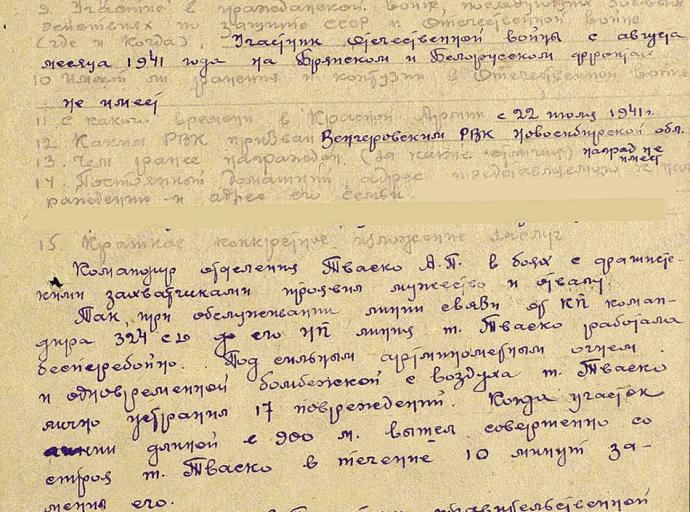 9. Участие в гражданской войне, последующих боевых
действиях по защите СССР и Отечественной войне
(где и когда). Участник Отечественной войны с августа
месяца 1941 года на Брянском и Белорусском фронтах
10 Имеет ли ранения и контузии в Отечественной войне
не имеет
11 С какого времени в Красной Армии с 22 июля 1941 г.
12. Каким РВК призван Венгеровским РВК Новосибирской обл.
13. Чем ранее награжден (за какие отличия) наград не
имеет
14. Постоянный домашний адрес представляемого к
и адрес его семьи.
15. Краткое конкретное изложение заслуг
Командир отделения Тваско А.П. в боях с
захватчиками проявил мужество и отвагу.
Так, при обслуживании линии связи от КП коман-
дира 324 сд до его НП линия т. Тваско работала
бесперебойно. Под сильным артминометным огнем
и одновременной бомбежкой с воздуха т. Тваско
лично устранил 17 повреждений. Когда участок
линии длиной в 900 м. вышел совершенно со
строя т. Тваско в течение 10 минут за-
менил его.